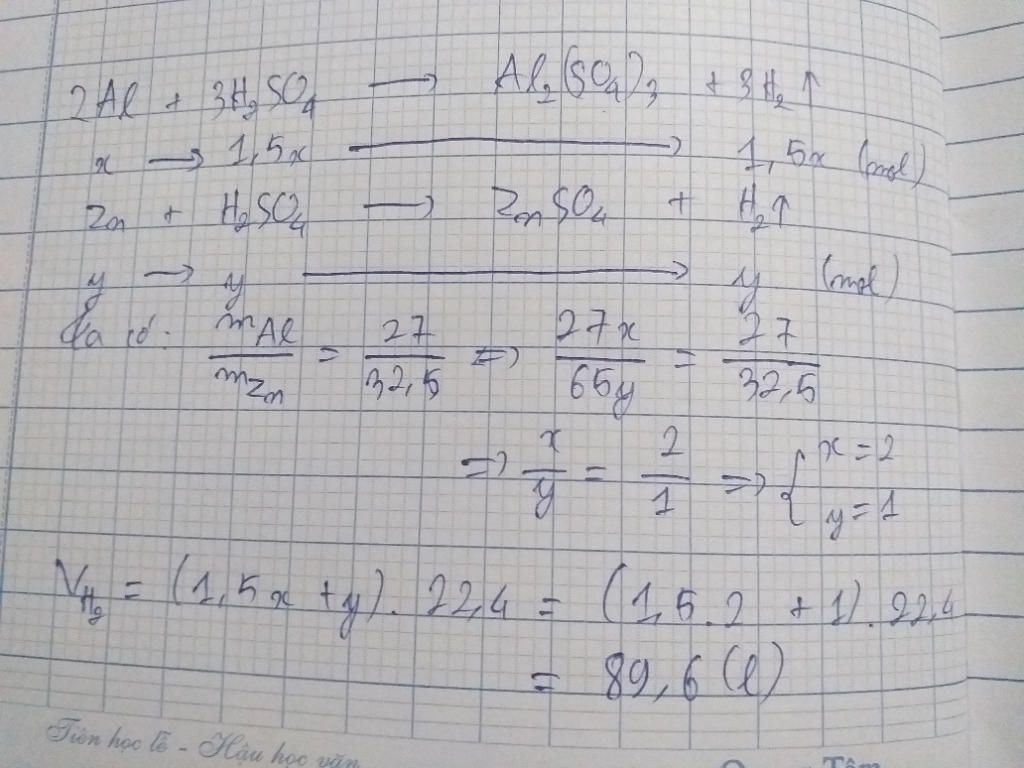 2Al + 3H₂SO₄ → Al₂(SO₄)₃ + 3H₂↑
x → 1,5x → 1,5x (mol)
Zn + H₂SO₄ → ZnSO₄ + H₂↑
y → y → y (mol)
Ta có: mAl/mZn = 27/32,5 => 27x/65y = 27/32,5
=> x/y = 2/1 => { x = 2 y = 1
V_H₂ = (1,5x + y). 22,4 = (1,5.2 + 1). 22,4
= 89,6 (l)
Tiên học lễ - Hậu học văn